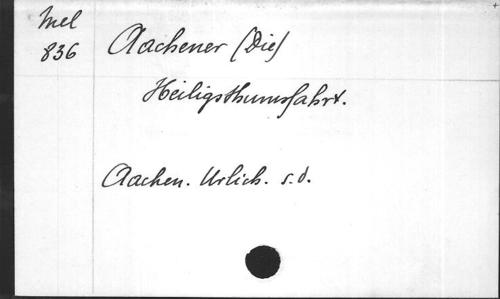 Mel
836
Aachener (Die)
Heiligsthumsfahrt.
Aachen. Urlich. s.d.